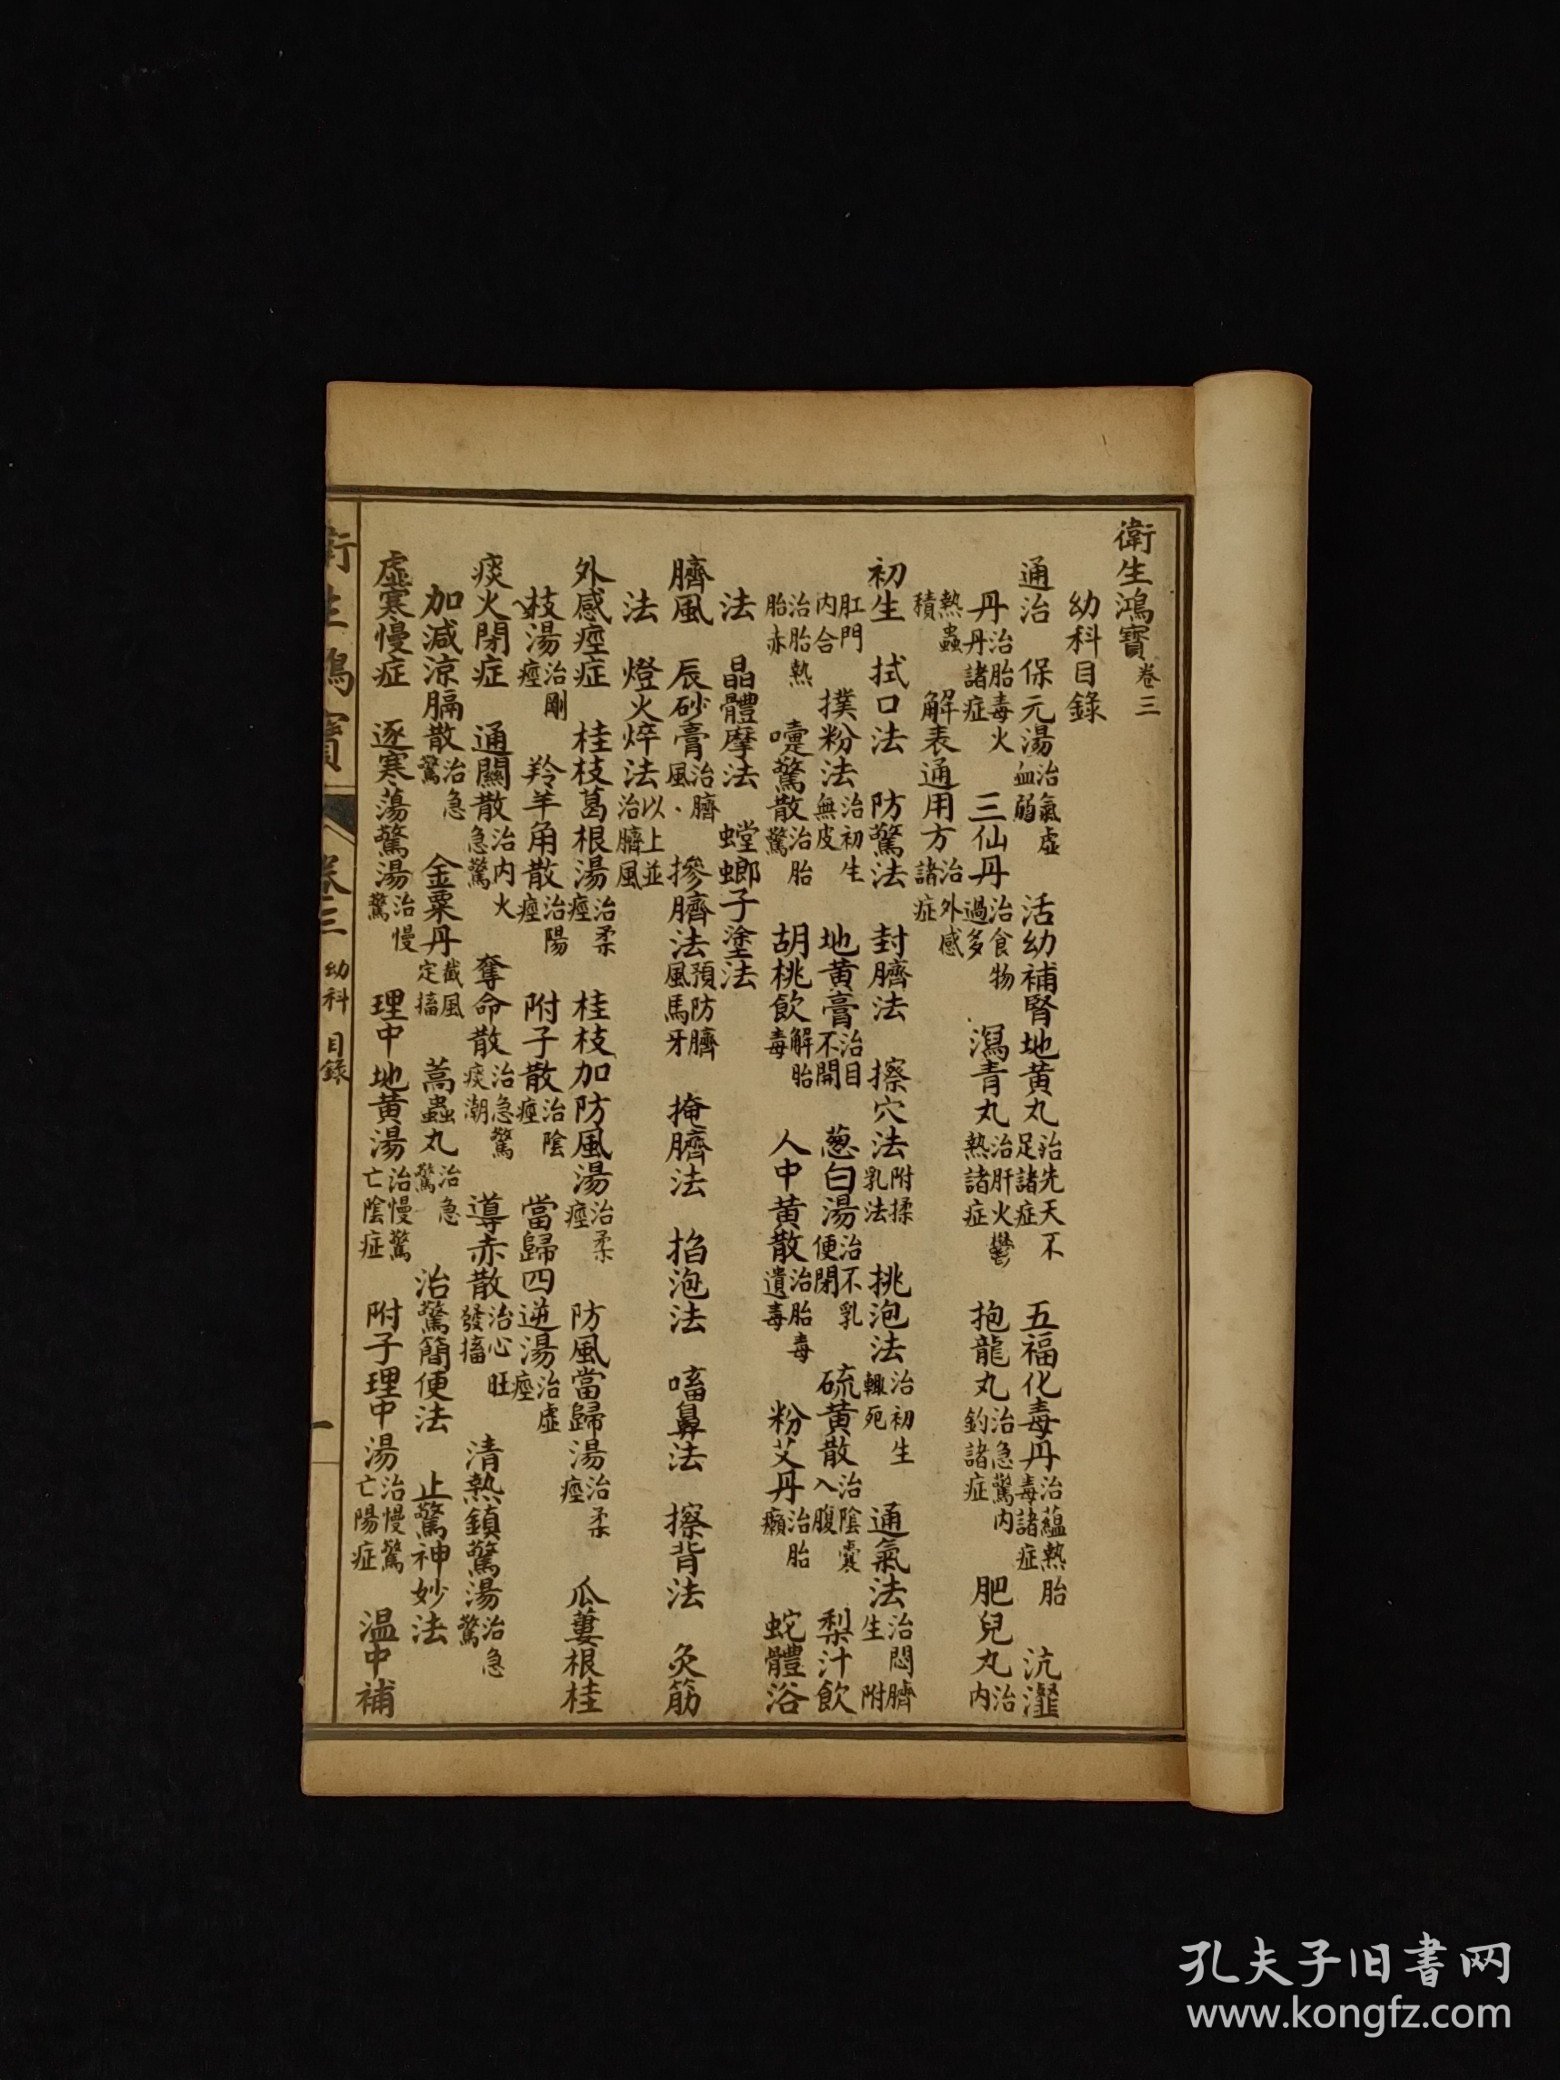 衛生鴻寶卷三
幼科目錄
通治 保元湯治氣虛血弱 活幼補腎地黃丸治先天不足諸症 五福化毒丹治蘊熱胎毒諸症 沆瀣
丹治胎毒火丹諸症 三仙丹治食物過多 瀉青丸治肝火鬱熱諸症 抱龍丸治急驚內釣諸症 肥兒丸治內
熱蟲積 解表通用方治外感諸症
初生 拭口法 防驚法 封臍法 擦穴法附揉乳法 挑泡法治初生輒死 通氣法治悶臍生 附
肛門內合 撲粉法治初生無皮 地黃膏治目不開 葱白湯治不乳便閉 硫黃散治陰囊入腹 梨汁飲
治胎熱胎赤 嚏驚散治胎驚 胡桃飲解胎毒 人中黃散治胎毒遺毒 粉艾丹治胎癩 蛇體浴
法 晶體摩法 螳螂子塗法
臍風 辰砂膏治臍風 摻臍法預防臍風馬牙 掩臍法 掐泡法 㗜鼻法 擦背法 灸筋
法 燈火焠法以上並治臍風
外感痙症 桂枝葛根湯治柔痙 桂枝加防風湯治柔痙 防風當歸湯治柔痙 瓜蔞根桂
枝湯治剛痙 羚羊角散治陽痙 附子散治陰痙 當歸四逆湯治虛痙
痰火閉症 通關散治內火急驚 奪命散治急驚痰潮 導赤散治心旺發搐 清熱鎮驚湯治急驚
加減涼膈散治急驚 金粟丹截風定搐 蒿蟲丸治急驚 治驚簡便法 止驚神妙法
虛寒慢症 逐寒蕩驚湯治慢驚 理中地黃湯治慢驚亡陰症 附子理中湯治慢驚亡陽症 溫中補
衛生鴻寶 卷三 幼科目錄 一
孔夫子旧书网
www.kongfz.com